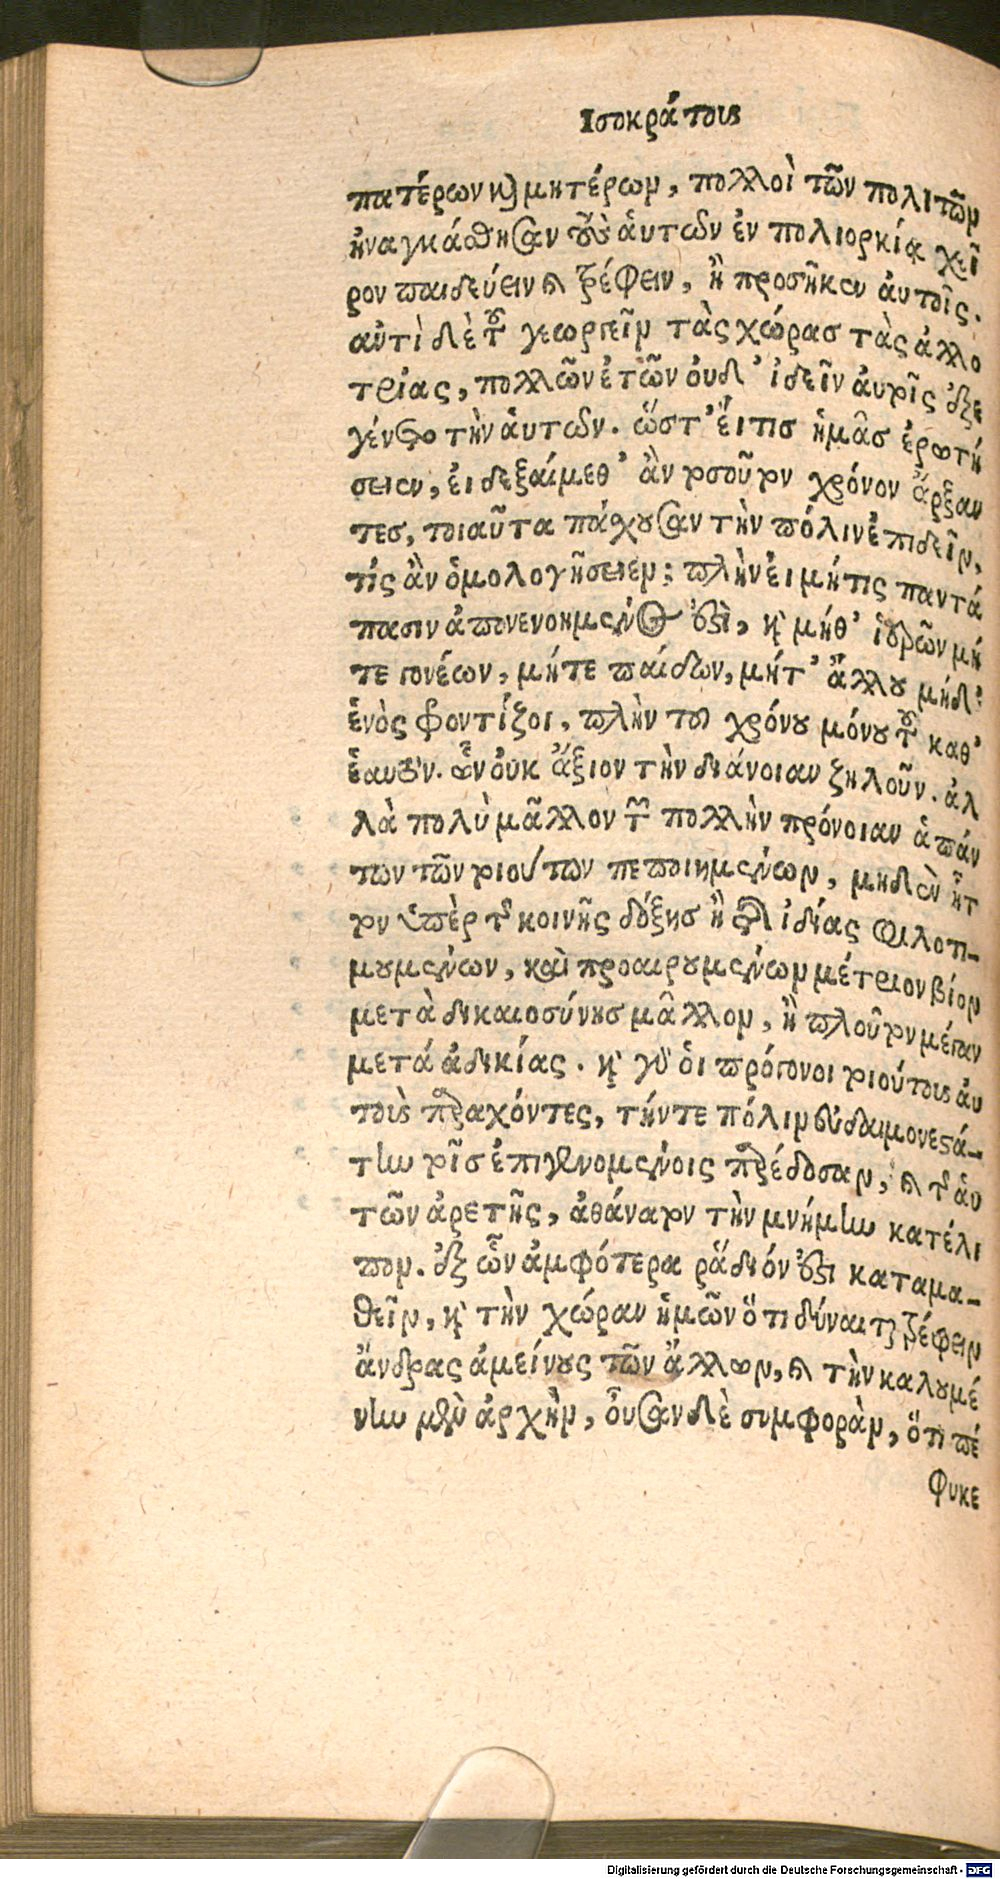 Ισοκράτους
πατέρων καὶ μητέρων, πολλοὶ τῶν πολιτῶν
ἠναγκάσθησαν τοὺς ἁυτῶν ἐν πολιορκίᾳ χεῖ
ρον παιδεύειν καὶ τρέφειν, ἢ προσῆκεν ἀυτοῖς.
αὐτὶ δὲ τοῦ γεωργεῖν τὰς χώρασ τὰς ἀλλο
τρίας, πολλῶν ἐτῶν ὀυδ' ἰδεῖν ἀυτοῖς ἐξε
γένετο τὴν ἁυτῶν. ὥστ' ἔιτισ ἡμᾶσ ἐρωτή
σειεν, ἐι δεξαίμεθ' ἂν τοσοῦτον χρόνον ἄρξαν
τεσ, τοιαῦτα πάσχουσαν τὴν πόλιν ἐπιδεῖν,
τίς ἂν ὁμολογήσειεν; πλὴν ἐι μή τις παντά
πασιν ἀπονενοημένος ἐστὶ, καὶ μήθ' ἱερῶν μή
τε γονέων, μήτε παίδων, μήτ' ἄλλου μηδ'
ἑνὸς φροντίζοι, πλὴν τοῦ χρόνου μόνου τοῦ καθ'
ἑαυτόν. ὧν ὀυκ ἄξιον τὴν διάνοιαν ζηλοῦν. ἀλ
λὰ πολὺ μᾶλλον τῶν πολλὴν πρόνοιαν ἁπάν
των τῶν τοιούτων πεποιημένων, μηδὲν ἧτ
τον ὑπὲρ τῆς κοινῆς δόξησ ἢ τῆς ἰδίας φιλοτι-
μουμένων, καὶ προαιρουμένων μέτριον βίον
μετὰ δικαιοσύνησ μᾶλλον, ἢ πλοῦτον μέγαν
μετά ἀδικίας. καὶ γὰρ ὁι πρόγονοι τοιούτους ἁυ
τοὺς παρασχόντες, τήν τε πόλιν εὐδαιμονεστά-
την τοῖσ ἐπιγενομένοις παρέδοσαν, καὶ τῆς ἁυ
τῶν ἀρετῆς, ἀθάνατον τὴν μνήμην κατέλι
πον. ἐξ ὧν ἀμφότερα ῥᾴδιόν ἐστι καταμα-
θεῖν, καὶ τὴν χώραν ἡμῶν ὅτι δύναται τρέφειν
ἄνδρας ἀμείνους τῶν ἄλλων, καὶ τὴν καλουμέ
νην μὲν ἀρχὴν, ὀυσαν δὲ συμφορὰν, ὅτι πέ
φυκε
Digitalisierung gefördert durch die Deutsche Forschungsgemeinschaft - DFG